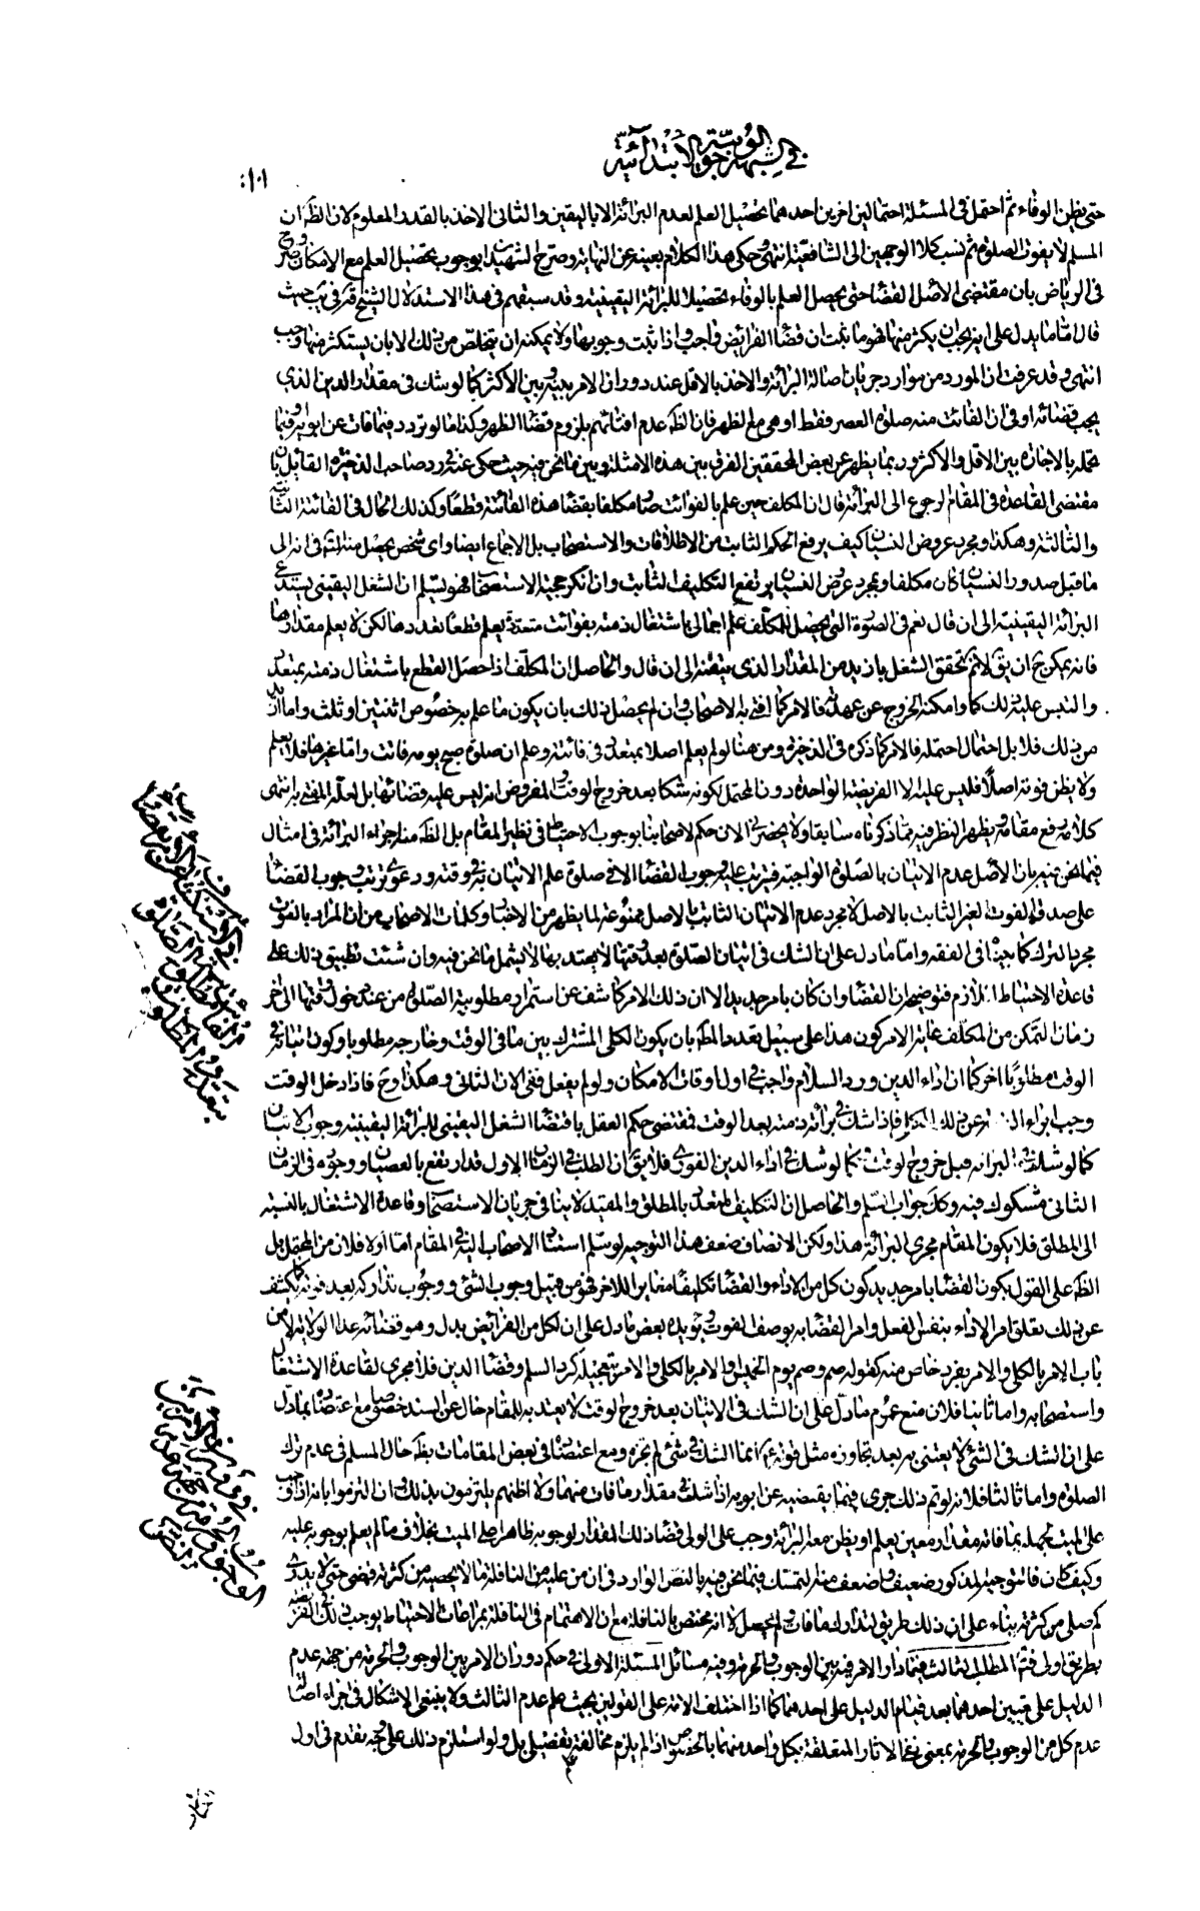 في الشبهة الوجوبية الابتدائية
١٠١
حتى يظن الوفاء ثم احتمل في المسئلة احتمالين اخرين احدهما تحصيل العلم لعدم البرائة الا باليقين والثاني الاخذ بالقدر المعلوم لان الظ ان
المسلم لا يفوت الصلوة ثم نسب كلا الوجهين الى الشافعية انتهى وحكى هذا الكلام بعينه عن النهاية وصرح الشهيدان بوجوب تحصيل العلم مع الامكان وصرح
في الرياض بان مقتضى الاصل القضاء حتى يحصل العلم بالوفاء تحصيلا للبرائة اليقينية وقد سبقهم في هذا الاستدلال الشيخ قدس سره في يب حيث
قال اما ما يدل على انه يجب ان يكثر منها فهو ما ثبت ان قضاء الفرائض واجب واذا ثبت وجوبها ولا يمكنه ان يتخلص من ذلك الا بان يستكثر منها وجب
انتهى وقد عرفت ان المورد من موارد جريان اصالة البرائة والاخذ بالاقل عند دوران الامر بينه وبين الاكثر كما لو شك في مقدار الدين الذي
يجب قضائه او في ان الفائت منه صلوة العصر فقط او هي مع الظهر فان الظ عدم افتائهم بلزوم قضاء الظهر وكذا ما لو تردد فيما فات عن ابويه او فيما
تحمله بالاجارة بين الاقل والاكثر وربما يظهر عن بعض المحققين الفرق بين هذه الامثلة وبين ما نحن فيه حيث حكى عنه في رد صاحب الذخيرة القائل بان
مقتضى القاعدة في المقام الرجوع الى البرائة قال ان المكلف حين علم بالفوائت صار مكلفا بقضاء هذه الفائتة قطعا وكذلك الحال في الفائتة الثانية
والثالثة وهكذا ومجرد عروض النسيان كيف يرفع الحكم الثابت من الاطلاقات والاستصحاب بل الاجماع ايضا واي شخص يحصل منه التأمل في انه الى
ما قبل صدور النسيان كان مكلفا وبمجرد عروض النسيان يرتفع التكليف الثابت وان انكر حجية الاستصحاب فهو يسلم ان الشغل اليقيني يستدعي
البرائة اليقينية الى ان قال نعم في الصورة التي يحصل للمكلف علم اجمالي باشتغال ذمته بفوائت متعددة يعلم قطعا تعددها لكن لا يعلم مقدارها
فانه يمكن ح ان يق لا نم تحقق الشغل بازيد من المقدار الذي يتيقنه الى ان قال والحاصل ان المكلف اذا حصل القطع باشتغال ذمته بمتعدد
والتبس عليه ذلك كما وامكنه الخروج عن عهدته فالامر كما افتى به الاصحاب وان لم يحصل ذلك بان يكون ما علم به خصوص اثنتين او ثلث واما ازيد
من ذلك فلا بل احتمال احتمله فالامر كما ذكره في الذخيرة ومن هنا لو لم يعلم اصلا بمتعدد في فائتة وعلم ان صلوة صبح يومه فاتت واما غيرها فلا يعلم
ولا يظن فوته اصلا فليس عليه الا الفريضة الواحدة دون المحتمل لكونه شكا بعد خروج الوقت والمفروض انه ليس عليه قضائها بل لعله المفتى به انتهى
كلامه رفع مقامه ويظهر النظر فيه مما ذكرناه سابقا ولا يحضرني الان حكم لاصحابنا بوجوب الاحتياط في نظير المقام بل الظ منهم اجراء البرائة في امثال
فيما نحن فيه بان الاصل عدم الاتيان بالصلوة الواجبة فيترتب عليه وجوب القضاء الا في صلوة علم الاتيان بها في وقته ودعوى ترتب وجوب القضاء
على صدق الفوت الغير الثابت بالاصل لا مجرد عدم الاتيان الثابت بالاصل ممنوعة لما يظهر من الاخبار وكلمات الاصحاب من ان المراد بالفوت
مجرد الترك كما بيناه في الفقه واما ما دل على ان الشك في اتيان الصلوة بعد وقتها لا يعتد بها لا يشمل ما نحن فيه وان شئت تطبيق ذلك على
قاعدة الاحتياط اللازم فتوضيحه ان القضاء وان كان بامر جديد الا ان ذلك الامر كاشف عن استمرار مطلوبية الصلوة من عند دخول وقتها الى اخر
زمان التمكن من المكلف غاية الامر كون هذا على سبيل تعدد المط بان يكون الكلي المشترك بين ما في الوقت وخارجه مطلوبا وكون اتيانه في
الوقت مطلوبا اخر كما ان اداء الدين ورد السلام واجب في اول اوقات الامكان ولو لم يفعل ففي الان الثاني وهكذا وح فاذا دخل الوقت
وجب ابراء الذمة عن ذلك الكلي فاذا شك في برائة ذمته بعد الوقت فمقتضى حكم العقل باقتضاء الشغل اليقيني للبرائة اليقينية وجوب الاتيان
كما لو شك في البرائة قبل خروج الوقت وكما لو شك في اداء الدين الفوري فلا يق ان الطلب في الزمان الاول قد ارتفع بالعصيان ووجوده في الزمان
الثاني مشكوك فيه وكذلك جواب السلام والحاصل ان التكليف المتعدد بالمطلق والمقيد لا ينافي جريان الاستصحاب وقاعدة الاشتغال بالنسبة
الى المطلق فلا يكون المقام مجرى البرائة هذا ولكن الانصاف ضعف هذا التوجيه لو سلم استناد الاصحاب اليه في المقام اما اولا فلان من المحتمل بل
الظ على القول بكون القضاء بامر جديد كون كل من الاداء والقضاء تكليفا مغايرا للاخر فهو من قبيل وجوب الشئ ووجوب تداركه بعد فوته كما يكشف
عن ذلك تعلق امر الاداء بنفس الفعل وامر القضاء به بوصف الفوت ويؤيده بعض ما دل على ان لكل من الفرائض بدل وهو قضائه عدا الولاية لا من
باب الامر بالكلي والامر بفرد خاص منه كقوله صم وصم يوم الخميس او الامر بالكلي والامر بتعجيله كرد السلم وقضاء الدين فلا مجرى لقاعدة الاشتغال
واستصحابه واما ثانيا فلان منع عموم ما دل على ان الشك في الاتيان بعد خروج الوقت لا يعتد به للمقام خال عن السند خصوصا مع اعتضاده بما دل
على ان الشك في الشئ لا يعتنى به بعد تجاوزه مثل قوله ع انما الشك في شئ لم تجزه ومع اعتضاده في بعض المقامات بظ حال المسلم في عدم ترك
الصلوة واما ثالثا فلانه لو تم ذلك جرى فيما يقضيه عن ابويه اذا شك في مقدار ما فات منهما ولا اظنهم يلتزمون بذلك وان التزموا بانه اذا وجب
على الميت لجهله بما فاته مقدار معين يعلم او يظن معه البرائة وجب على الولي قضاء ذلك المقدار لوجوبه ظاهرا على الميت بخلاف ما لم يعلم بوجوبه عليه
وكيف كان فالتوجيه المذكور ضعيف واضعف منه التمسك فيما نحن فيه بالنص الوارد في ان من عليه من النافلة ما لا يحصيه من كثرته قضى حتى لا يدري
كم صلى من كثرته بناء على ان ذلك طريق لتدارك ما فات ولم يحصل لا انه مختص بالنافلة مع ان الاهتمام في النافلة بمراعات الاحتياط يوجب ذلك في الفريضة
بطريق اولى فتم المطلب الثالث فيما دار الامر فيه بين الوجوب والحرمة وفيه مسائل المسئلة الاولى في حكم دوران الامر بين الوجوب والحرمة من جهة عدم
الدليل على تعيين احدهما بعد قيام الدليل على احدهما كما اذا اختلف الامة على القولين بحيث علم عدم الثالث ولا ينبغي الاشكال في اجراء اصالة
عدم كل من الوجوب والحرمة بمعنى نفي الاثار المتعلقة بكل واحد منهما بالخصوص اذا لم يلزم مخالفة تفصيل بل ولو استلزم ذلك على وجه تقدم في اول